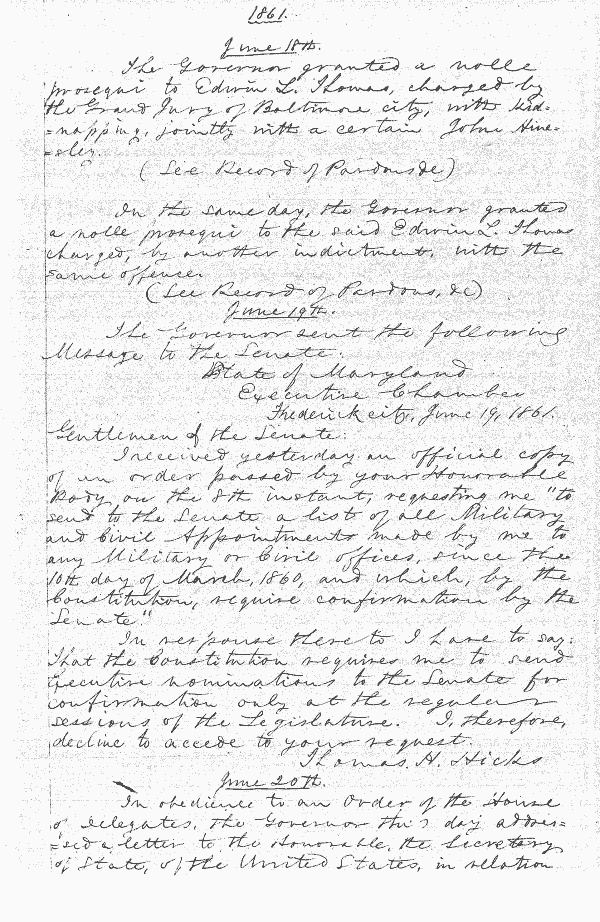 1861.
June 18th.
The Governor granted a nolle
prosequi to Edwin L. Thomas, charged by
the Grand Jury of Baltimore city, with kid=
=napping, jointly with a certain John Hine=
=sley.
(See Record of Pardons &c)
In the same day, the Governor granted
a nolle prosequi to the said Edwin L. Thomas
charged, by another indictment, with the
same offence.
(See Record of Pardons, &c)
June 19th.
The Governor sent the following
Message to the Senate:
State of Maryland
Executive Chamber
Frederick city, June 19, 1861.
Gentlemen of the Senate:
I received yesterday an official copy
of an order passed by your Honorable
Body on the 8th instant, requesting me "to
send to the Senate a list of all Military
and Civil Appointments made by me to
any Military or Civil offices, since the
10th day of March, 1860, and which, by the
Constitution, require confirmation by the
Senate."
In response thereto I have to say:
That the Constitution requires me to send
Executive nominations to the Senate for
confirmation only at the regular
sessions of the Legislature. I, therefore,
decline to accede to your request.
Thomas. H. Hicks
June 20th.
In obedience to an Order of the House
of Delegates, the Governor this day addres=
=sed a letter to the Honorable, the Secretary
of State, of the United States, in relation